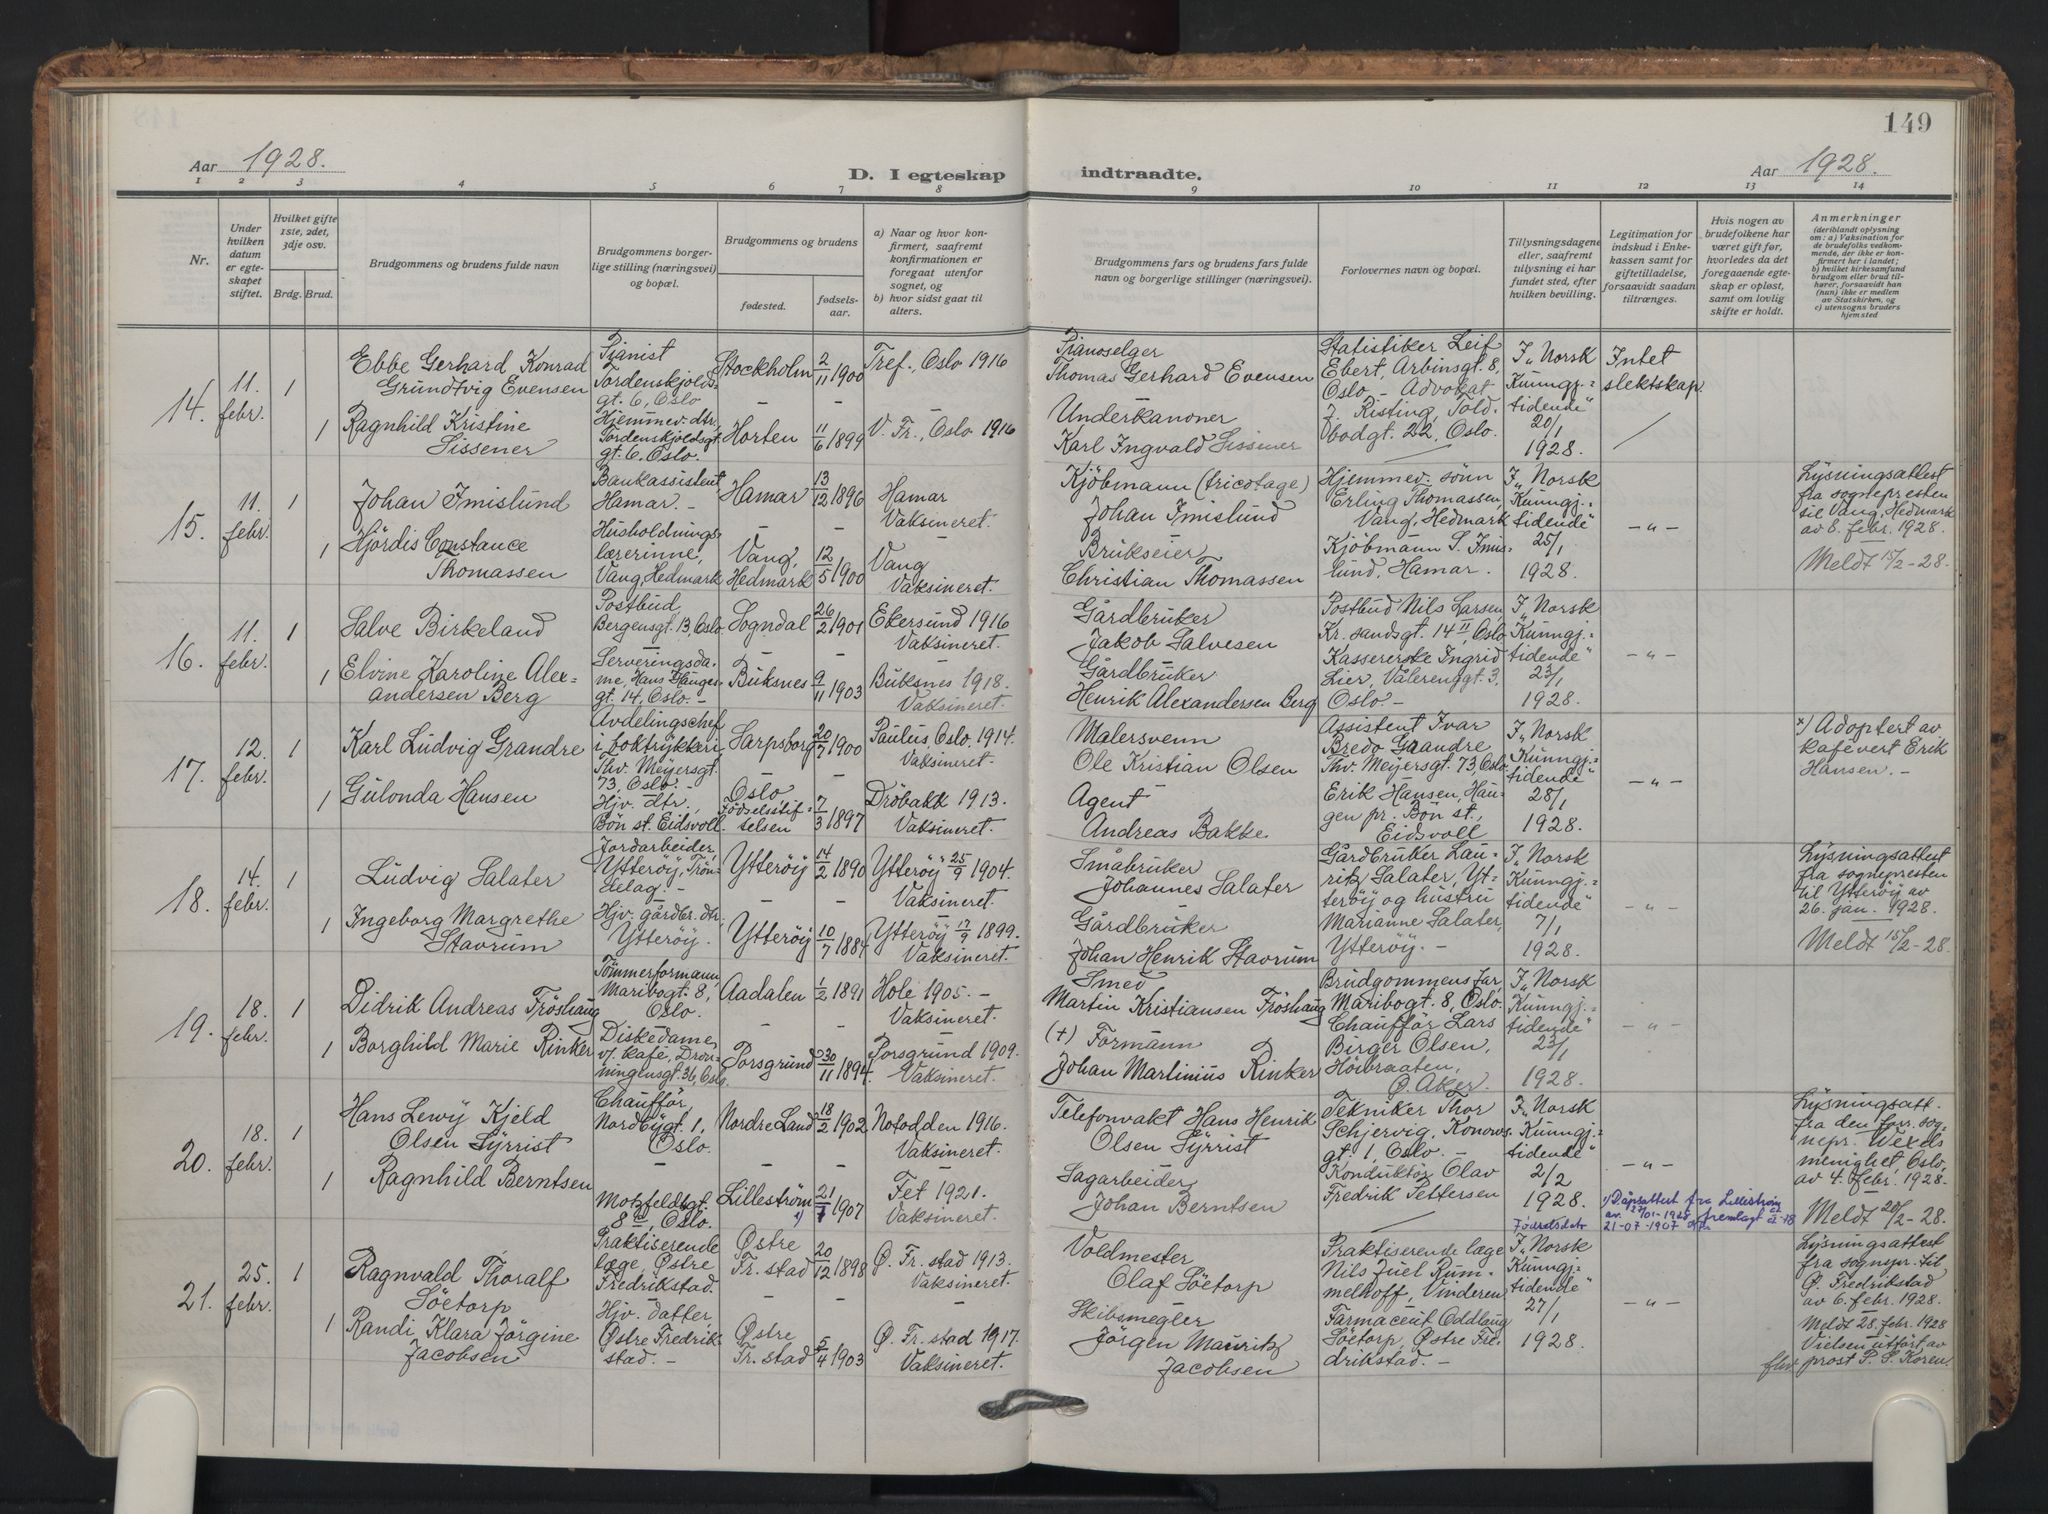 149
Aar 1928.
D. I egteskap indtraadte.
Aar 1928.
1 2 3 4 5 6 7 8 9 10 11 12 13 14
Nr.
Under hvilken datum er egteskapet stiftet.
Hvilket gifte 1ste, 2det, 3dje osv.
Brdg. Brud.
Brudgommens og brudens fulde navn
Brudgommens borgerlige stilling (næringsvei) og bopæl.
Brudgommens og brudens
fødested.
fødselsaar.
a) Naar og hvor konfirmert, saafremt konfirmationen er foregaat utenfor sognet, og
b) hvor sidst gaat til alters.
Brudgommens fars og brudens fars fulde navn og borgerlige stillinger (næringsvei).
Forlovernes navn og bopæl.
Tillysningsdagene eller, saafremt tillysning ei har fundet sted, efter hvilken bevilling.
Legitimation for indskud i Enkekassen samt for giftetilladelse, forsaavidt saadan tiltrænges.
Hvis nogen av brudefolkene har været gift før, hvorledes da det foregaaende egteskap er opløst, samt om lovlig skifte er holdt.
Anmerkninger
(deriblandt oplysning om: a) Vaksination for de brudefolks vedkommende, der ikke er konfirmert her i landet; b) hvilket kirkesamfund brudgom eller brud tilhører, forsaavidt han (hun) ikke er medlem av Statskirken, og c) utensogns bruders hjemsted
14. 11. febr. 1
Ebbe Gerhard Konrad
Grundtvig Evensen
Pianist
Tordenskjolds-
gt. 6, Oslo
Stockholm 2/11 1900
Tref., Oslo 1916
Pianoselger
Thomas Gerhard Evensen
Statistiker Leif
Ebert, Arbinsgt. 8,
Oslo – Advokat
J. Risting, Told-
bodgt. 22, Oslo.
I „Norsk
Kunngj.-
tidende"
20/1
1928.
Intet
slektskap
1 Ragnhild Kristine
Sissener
Hjemmev. dtr,
Tordenskjoldsgt.
gt. 6. Oslo.
Horten 11/6 1899
V. Fr., Oslo 1916
Underkanoner
Karl Ingvald Sissener
15. 11. febr. 1
Johan Imislund
Bankassistent
Hamar. –
Hamar 13/12 1896
Hamar
Vaksineret.
Kjöbmann (tricotage)
Johan Imislund
Hjemmev. sönn
Erling Thomassen,
Vang, Hedmark
Kjöbmann S. Imis-
lund, Hamar.
I „Norsk
Kunngj.-
tidende"
25/1
1928.
– " –
Lysningsattest
fra sognepresten
til Vang, Hedmark
av 8. febr. 1928.
Meldt 15/2-28.
1 Hjördis Constance
Thomassen
Husholdnings-
lærerinne,
Vang, Hedmark
Vang,
Hedmark 12/5 1900
Vang
Vaksineret.
Brukseier
Christian Thomassen
16. 11. febr. 1
Salve Birkeland
Postbud,
Bergensgt. 13, Oslo
Sogndal 26/2 1901
Ekersund 1916
Vaksineret.
Gårdbruker
Jakob Salvesen
Postbud Nils Larsen
Kr. sandsgt. 14 II, Oslo
Kassererske Ingrid
Lier, Vålerenggt. 3,
Oslo. –
I „Norsk
Kunngj.-
tidende"
23/1
1928.
– " –
1 Elvine Karoline Alex-
andersen Berg
Serveringsda-
me, Hans Hauges-
gt. 14, Oslo. –
Buksnes 9/11 1903
Buksnes 1918.
Vaksineret.
Gårdbruker
Henrik Alexandersen Berg
17. 12. febr. 1
Karl Ludvig Grandre
Avdelingschef
i boktrykkeri
Thv. Meyersgt.
73, Oslo. –
Sarpsborg 20/7 1900
Paulus, Oslo, 1914.
Vaksineret.
Malersvenn
Ole Kristian Olsen
Assistent Ivar
Bredo Grandre
Thv. Meyersgt. 73, Oslo
Erik Hansen, Hau-
gen pr. Bön st.,
Eidsvoll
I „Norsk
Kunngj.-
tidende"
28/1
1928.
– " –
x) Adoptert av
kafévert Erik
Hansen. –
1 Gulonda Hansen
Hjv. dtr,
Bön st. Eidsvoll
Oslo
Födselsstif-
telsen 7/3 1897
Dröbakk 1913.
Vaksineret.
Agent
Andreas Bakke
18. 14. febr. 1
Ludvig Salater
Jordarbeider
Ytteröy, Trön-
delag –
Ytteröy 14/2 1890
Ytteröy 25/9 1904.
Vaksineret.
Småbruker
Johannes Salater
Gårdbruker Lau-
ritz Salater, Yt-
teröy og hustru
Marianne Salater,
Ytteröy. –
I „Norsk
Kunngj.-
tidende"
7/1
1928.
– " –
Lysningsattest
fra sognepresten
til Ytteröy av
26. jan. 1928.
Meldt 15/2-28.
1 Ingeborg Margrethe
Stavrum
Hjv. gårdbr. dtr,
Ytteröy.
Ytteröy 10/7 1884
Ytteröy 17/9 1899.
Vaksineret.
Gårdbruker
Johan Henrik Stavrum
19. 18. febr. 1
Didrik Andreas Fröshaug
Tömmerformann,
Maribogt. 8,
Oslo.
Aadalen 1/2 1891
Hole 1905. –
Vaksineret.
Smed
Martin Kristiansen Fröshaug
Brudgommens far,
Maribogt. 8, Oslo.
Chaufför Lars
Birger Olsen,
Höibraaten,
Ö. Aker.
I „Norsk
Kunngj.-
tidende"
23/1
1928.
– " –
1 Borghild Marie Rinker
Diskedame
v/ kafé, Dron-
ningensgt. 36, Oslo
Porsgrund 30/11 1894.
Porsgrund 1909.
Vaksineret.
(+) Formann
Johan Martinius Rinker
20. 18. febr. 1
Hans Lewy Kjeld
Olsen Syrrist
Chaufför,
Nordbygt. 1,
Oslo.
Nordre Land 18/2 1902
Notodden 1916.
Vaksineret.
Telefonvakt Hans Henrik
Olsen Syrrist
Tekniker Thor
Schjervig, Konows-
gt. 1, Oslo. –
Konduktör Olav
Fredrik Pettersen
I „Norsk
Kunngj.-
tidende"
2/2
1928.
– " –
Lysningsatt.
fra den forr. sog-
nepr. Wexels
menighet, Oslo,
av 4. febr. 1928.
Meldt 20/2-28.
1 Ragnhild Berntsen
Motzfeldtgt.
8, Oslo.
Lilleström 21/7 1907
1)
Fet 1921.
Vaksineret.
Sagarbeider
Johan Berntsen
1) Dåpsattest fra Lilleström
Födselsdato
21-07-1907
21. 25. febr. 1
Ragnvald Thoralf
Söetorp
Praktiserende
læge, Östre
Fredrikstad.
Östre
Fr. stad 20/12 1898
Ö. Fr. stad 1913.
Vaksineret.
Voldmester
Olaf Söetorp
Praktiserende læge
Nils Juel Rum-
melhoff, Vinderen
Farmaceut Oddlaug
Söetorp, Östre Fre-
drikstad. –
I „Norsk
Kunngj-
tidende"
27/1
1928.
– " –
Lysningsattest
fra sognepr. til
Ö. Fredrikstad
av 6. febr. 1928.
Meldt 28. febr. 1928
Vielsen utfört av
prost P. S. Koren.
1 Randi Klara Jörgine
Jacobsen
Hjv. datter,
Östre Fredrik-
stad. –
Östre
Fr. stad 5/4 1903
Ö. Fr. stad 1917.
Vaksineret.
Skibsmegler
Jörgen Mauritz
Jacobsen